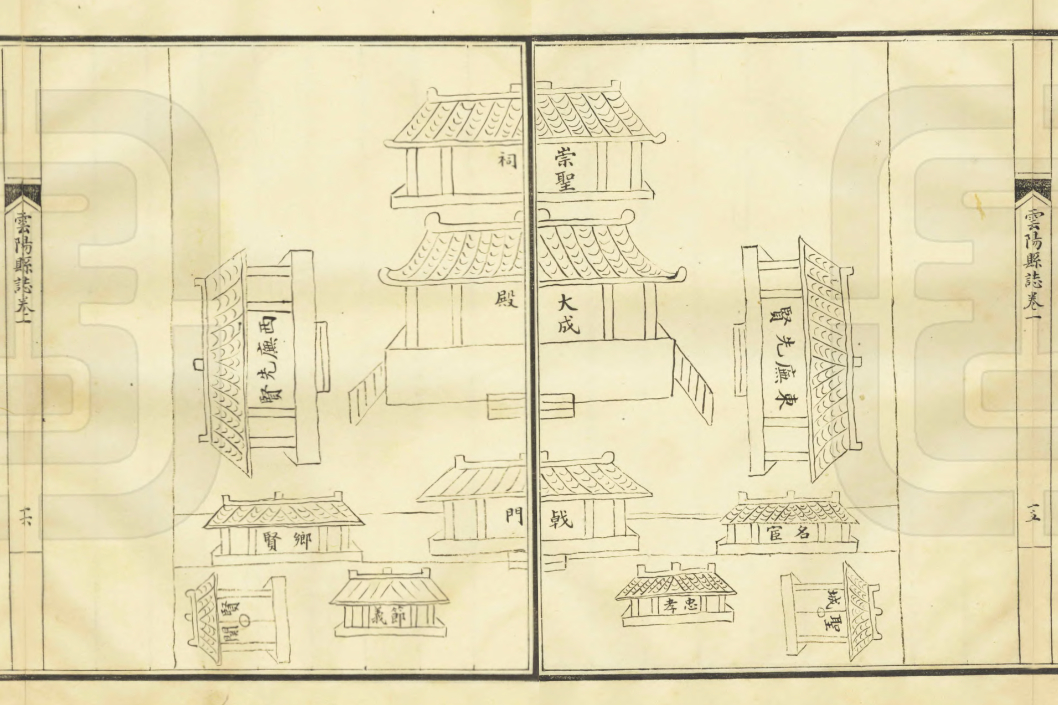 雲陽縣誌卷一
十五
崇聖
祠
大成
殿
東廡先賢
西廡先賢
戟
門
名宦
鄉賢
忠孝
節義
聖域
賢關
雲陽縣誌卷一
十六